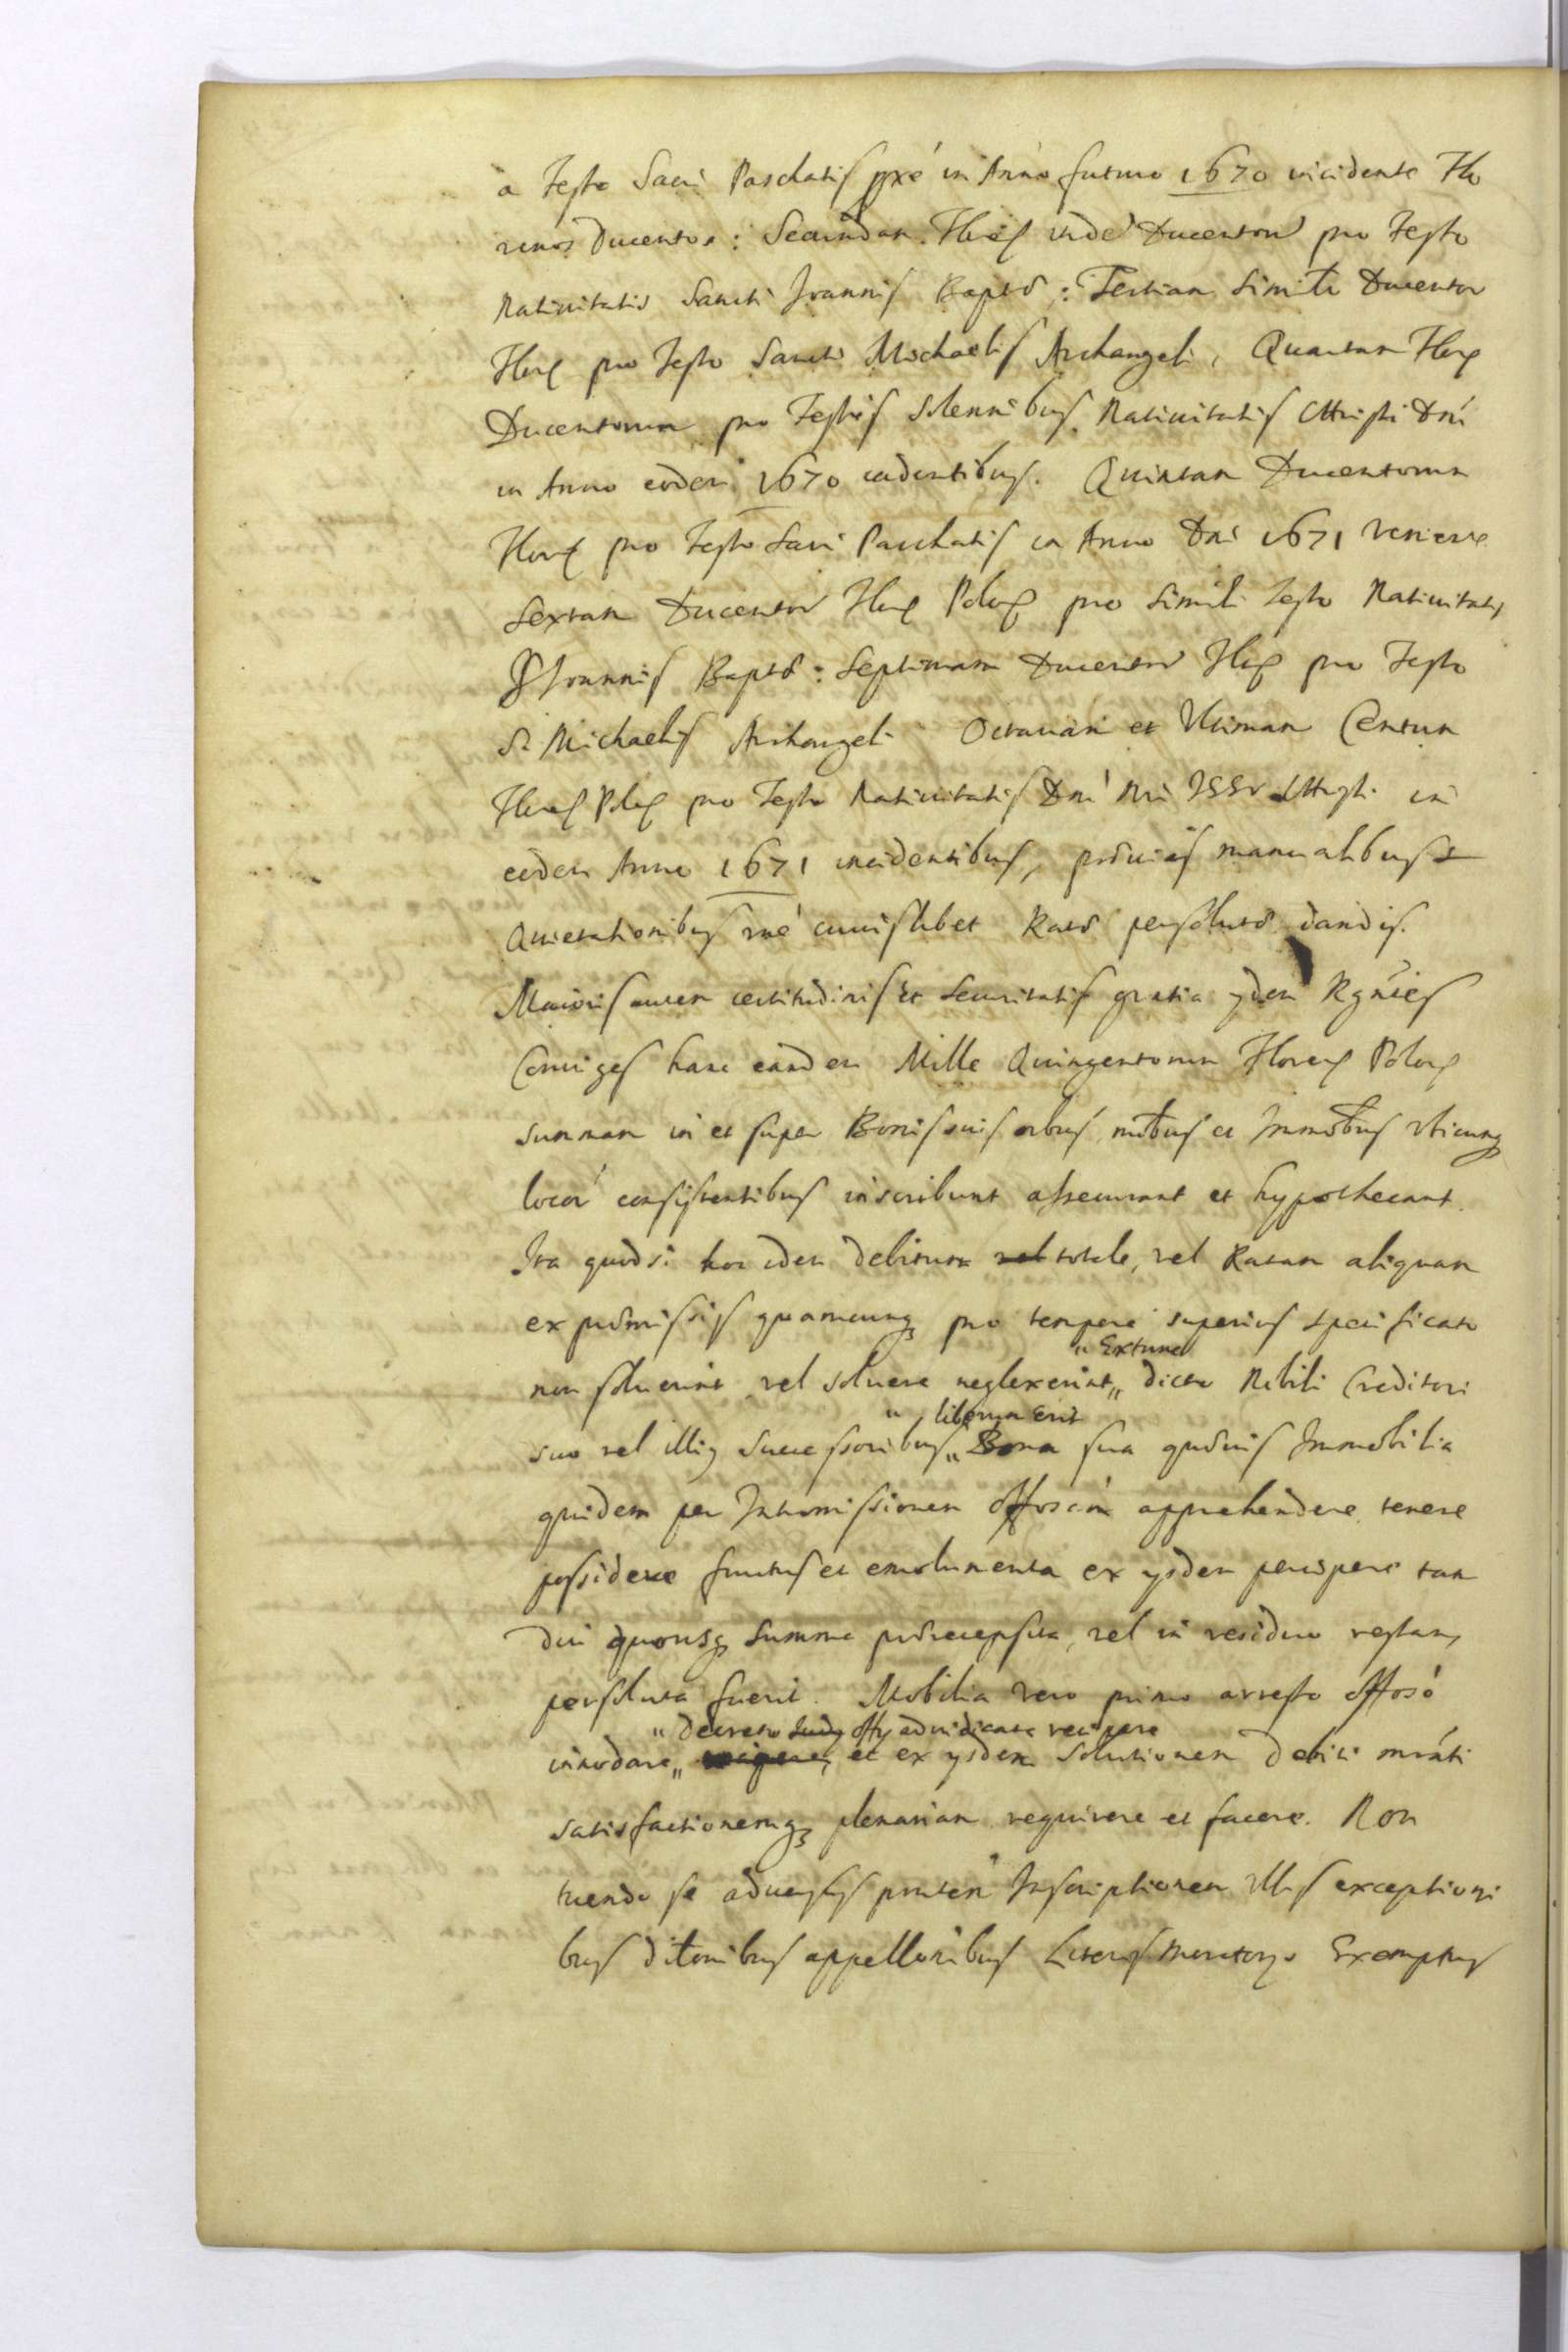 a Festo Sacri Paschatis pxe in Anno futuro 1670 incidente Flo
renos Ducentos: Secundam Flor inde Ducentor pro Festo
Nativitatis Sancti Joannis Bapt: Tertiam Similr Ducentor
Flor pro Festo Sancti Michaelis Archangeli, Quartam Flor
Ducentorum pro Festis Solennibus Nativitatis Christi Dni
in Anno eodem 1670 cadentibus. Quintam Ducentorum
Floren pro Festo Sacri Paschatis in Anno Dni 1671 veniente
Sextam Ducentor Flor Polon pro Simili Festo Nativitatis
S Joannis Bapt: Septimam Ducentor Flor pro Festo
S. Michaelis Archangeli Octavam et Ultimam Centum
Floren Pol pro Festo Nativitatis Dni Nri Christi in
eodem Anno 1671 incidentibus, manualibus
Quietationibus cuiuslibet Rata persoluta dandis.
Maioris autem certitudinis et Securitatis gratia ydem Rgntes
Coniuges hanc eandem Mille Quingentorum Floren Polon
Summam in et super Bonis suis mbus et Immobus ubicunq
locor consistentibus inscribunt assecurant et hypothecant.
Ita quod si hoc idem debitum vel totale, vel Ratam aliquam
ex praemissis quamcunq pro tempore superius specificato
non soluerint vel soluere neglexerint „ dicto Nobili Creditori
„ Extunc
suo vel illius Successoribus „ Bona sua quaevis Immobilia
„ liberum erit
quidem per Intromissionem offosam apprehendere tenere
possidere fructus et emolumenta ex ysdem percipere tam
diu quousq summa praerecepta, vel in residuo restans
persoluta fuerit. Mobilia vero primo arresto offoso
innodare „ recipere, et ex ysdem Solutionem debiti
„ decreto Judy offy adiudicata recipere
satisfactionemq plenariam requirere et facere. Non
tuendo se adversus pntem Inscriptionem ullis exceptioni
bus dilonibus appellonibus Literis Moratorys Exemptus